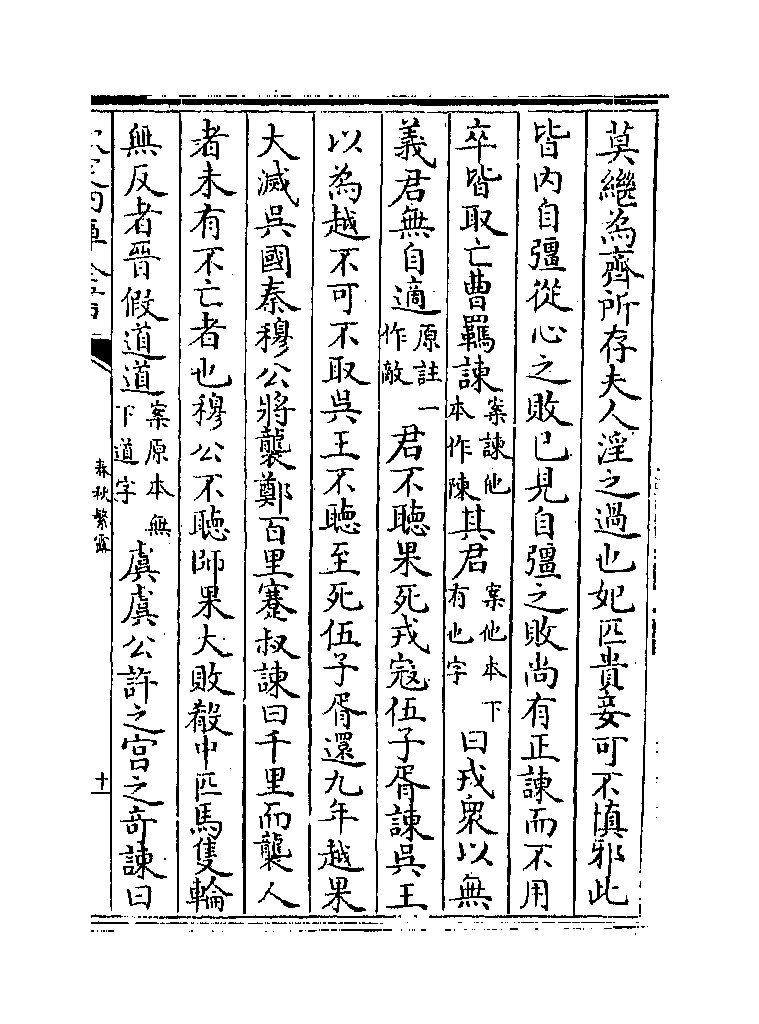 莫繼為齊所存夫人淫之過也妃匹貴妾可不慎邪此
皆內自彊從心之敗已見自彊之敗尚有正諫而不用
卒皆取亡曹羈諫案諫他本作陳其君案他本下有也字曰戎衆以無
義君無自適原註一作敵君不聽果死戎寇伍子胥諫吳王
以為越不可不取吳王不聽至死伍子胥還九年越果
大滅吳國秦穆公將襲鄭百里蹇叔諫曰千里而襲人
者未有不亡者也穆公不聽師果大敗殽中匹馬隻輪
無反者晉假道道案原本無下道字虞虞公許之宫之奇諫曰
春秋繁露
十一